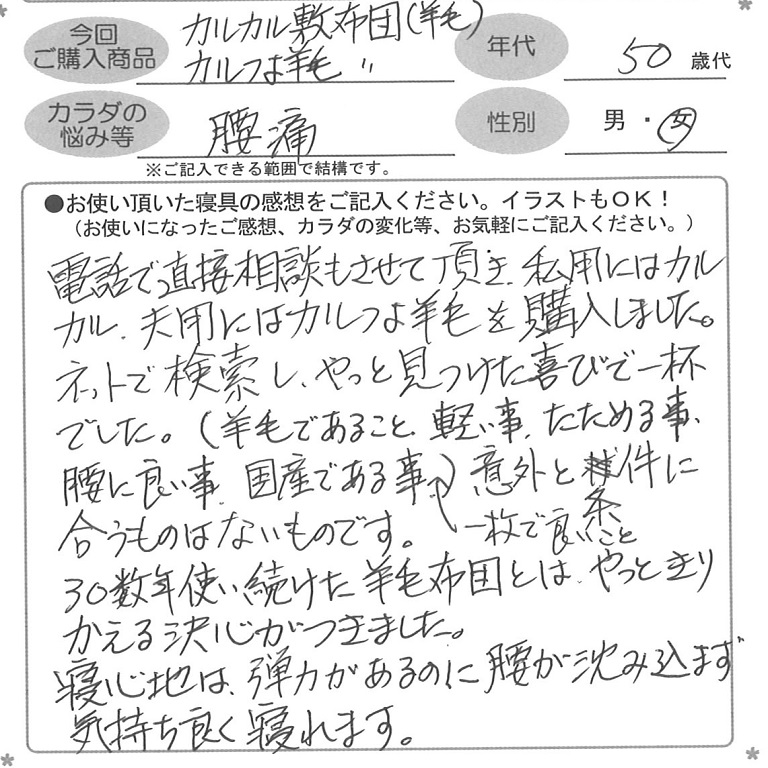 今回
ご購入商品
カルカル敷布団(羊毛)
カルフよ羊毛 〃
年代
50 歳代
カラダの
悩み等
腰痛
性別
男・女
※ご記入できる範囲で結構です。
●お使い頂いた寝具の感想をご記入ください。イラストもOK!
(お使いになったご感想、カラダの変化等、お気軽にご記入ください。)
電話で直接相談もさせて頂き、私用にはカル
カル、夫用にはカルフよ羊毛を購入しました。
ネットで検索し、やっと見つけた喜びで一杯
でした。(羊毛であること、軽い事、たためる事、
腰に良い事、国産である事)意外と条件に
合うものはないものです。 一枚で良いこと
30数年使い続けた羊毛布団とは、やっときり
かえる決心がつきました。
寝心地は、弾力があるのに腰が沈み込まず
気持ち良く寝れます。